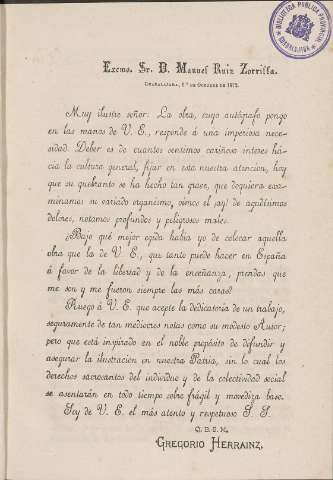 BIBLIOTECA PÚBLICA PROVINCIAL
GUADALAJARA
Excmo. Sr. D. Manuel Ruiz Zorrilla.
Guadalajara, 1.º de Octubre de 1872.
Muy ilustre señor: La obra, cuyo autógrafo pongo
en las manos de V. E., responde á una imperiosa nece-
sidad. Deber es de cuantos sentimos cariñoso interes há-
cia la cultura general, fijar en esta nuestra atencion, hoy
que su quebranto se ha hecho tan grave, que doquiera exa-
minamos su variado organismo, oimos el ¡ay! de agudísimos
dolores, notamos profundos y peligrosos males.
¿Bajo qué mejor egida habia yo de colocar aquella
obra que la de V. E., que tanto puede hacer en España
á favor de la libertad y de la enseñanza, prendas que
me son y me fueron siempre las más caras?
Ruego á V. E. que acepte la dedicatoria de un trabajo,
seguramente de tan mediocres notas como su modesto Autor;
pero que está inspirado en el noble propósito de difundir y
asegurar la ilustracion en nuestra Patria, sin lo cual los
derechos sacrosantos del individuo y de la colectividad social
se asentarán en todo tiempo sobre frágil y movediza base.
Soy de V. E. el más atento y respetuoso S. S.
Q. B. S. M.
GREGORIO HERRAINZ,